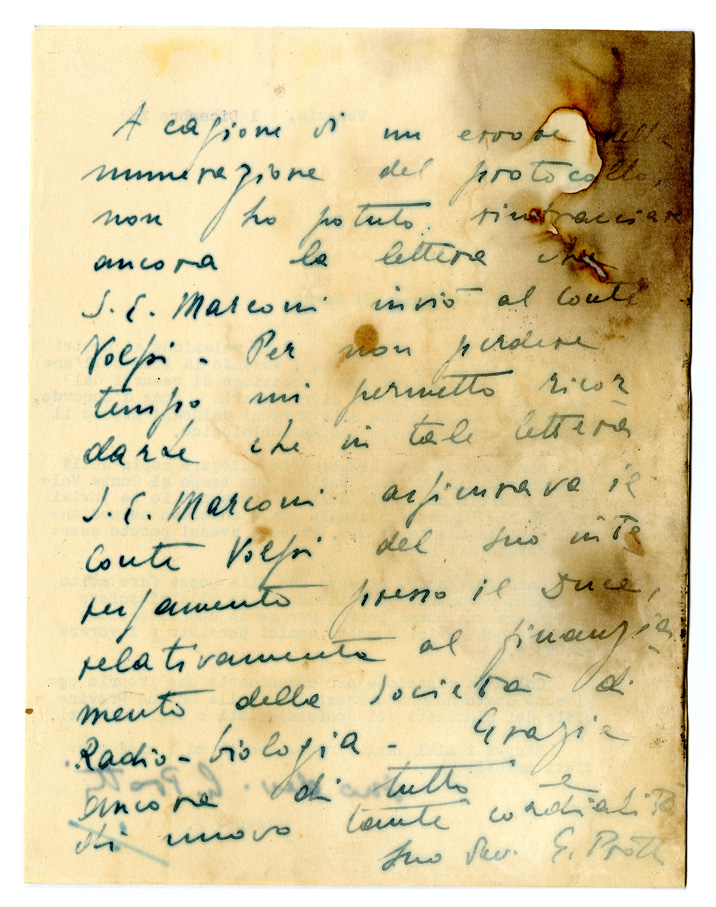 A cagione di un errore nella
numerazione del protocollo,
non ho potuto rintracciare
ancora la lettera che
S. E. Marconi inviò al Conte
Volpi - Per non perdere
tempo mi permetto ricor
darle che in tale lettera
S. E. Marconi assicurava il
Conte Volpi del suo inte
ressamento presso il Duce,
relativamente al finanzia
mento della Società di
Radio-biologia - Grazie
ancora di tutto e
di nuovo tante cordialità
suo dev. G. Protti